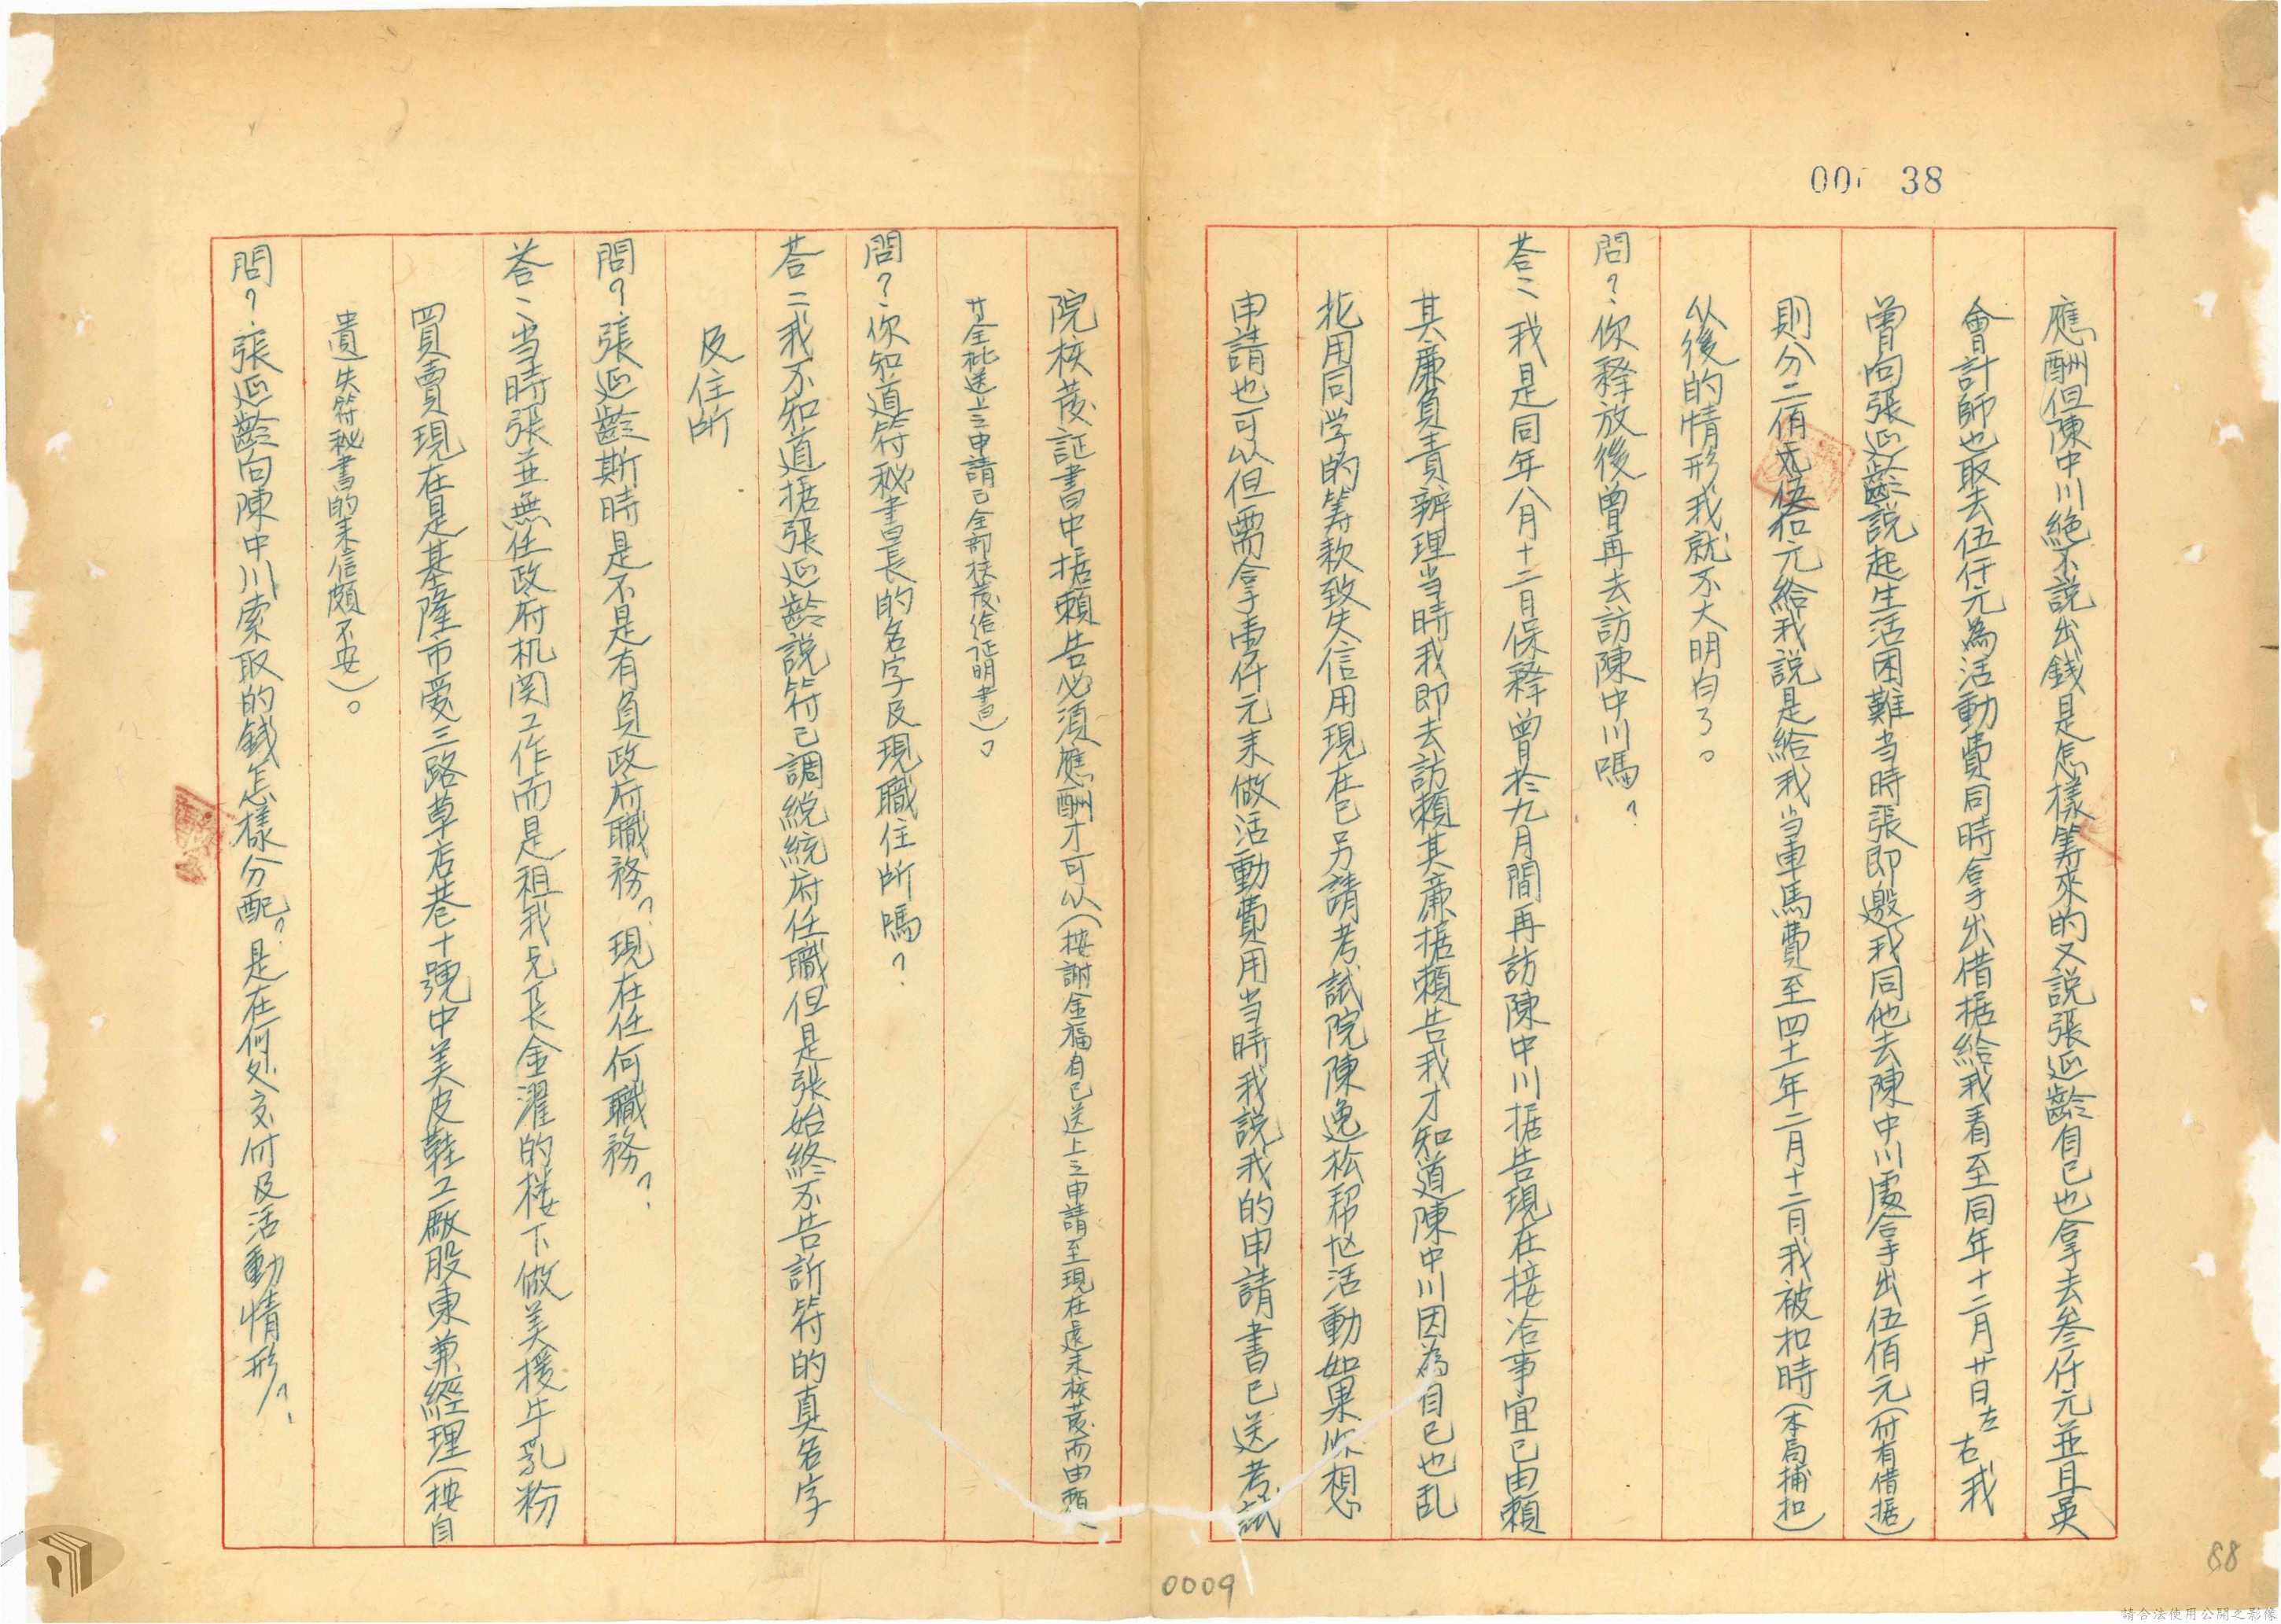 00 38
應酬但陳中川絕不說出錢是怎樣筹來的又說張延齡自己也拿去叁仟元並且英
會計師也取去伍仟元為活動費同時拿出借据給我看至同年十二月廿日左右我
曾向張延齡說起生活困難当時張即邀我同他去陳中川處拿出伍佰元(付有借据)
則分二佰元給我說是給我当車馬費至四十一年二月十二日我被扣時(本局捕扣)
以後的情形我就不大明白了。
問?:你釋放後曾再去訪陳中川嗎?
答:我是同年八月十二日保释曾於九月間再訪陳中川据告現在接洽事宜已由賴
其廉負責辦理当時我即去訪賴其廉据賴告我才知道陳中川因為自己也乱
花用同学的筹款致失信用現在已另請考試院陳逸松帮忙活動如果你想
申請也可以但需拿壹仟元来做活動費用当時我說我的申請書已送考試
院核荗証書中据賴告必須應酬才可以(按謝金福自己送上之申請至現在還未核荗而由賴
廿全批送上之申請已全部核荗给证明書)。
問?:你知道符秘書長的名字及現職住所嗎?
答:我不知道据張延齡說符已調総統府任職但是張始終不告訴符的真名字
及住所
問?:張延齡斯時是不是有負政府職務?現在任何職務?
答:当時張並無任政府机関工作而是祖我兄長金濯的楼下做美援牛乳粉
買賣現在是基隆市愛三路草店巷十號中美皮鞋工廠股東兼經理(按自
遺失符秘書的来信頗不安)。
問?:張延齡向陳中川索取的錢怎樣分配?是在何处交付及活動情形?
0009
88
請合法使用公開之影像